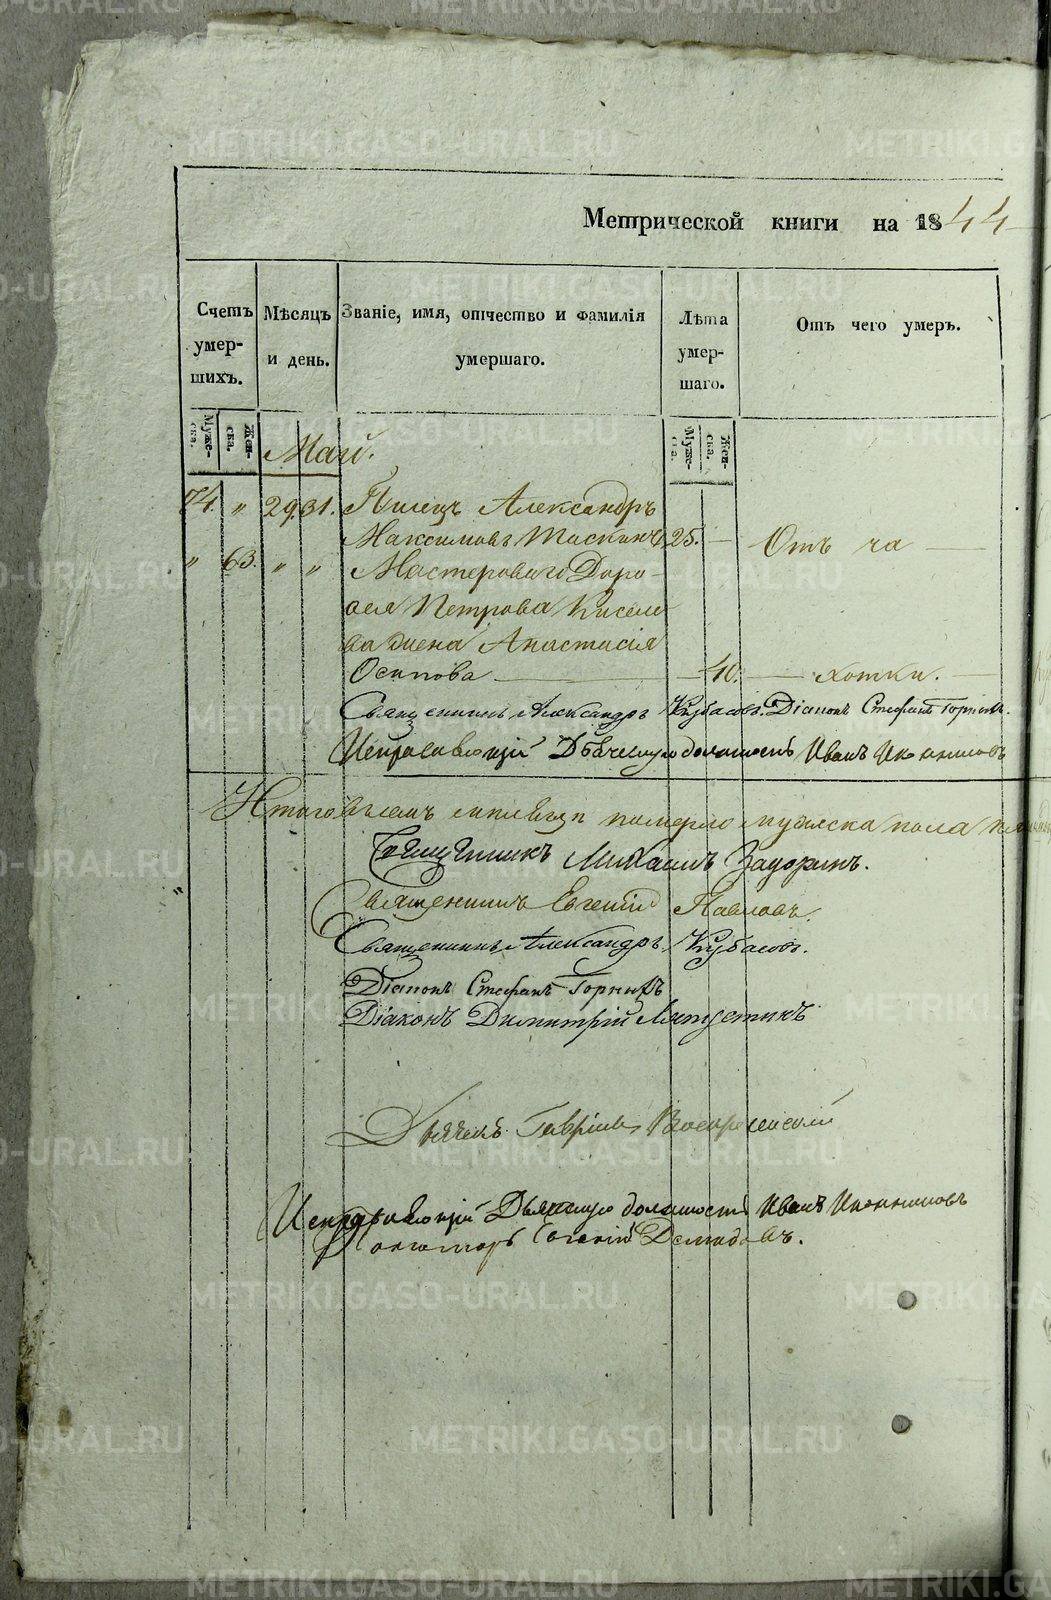 Метрической книги на 1844
Счетъ умер-шихъ.
Мѣсяцъ и день.
Званіе, имя, отчество и фамилія умершаго.
Лѣта умер-шаго.
Отъ чего умеръ.
Муже-ска.
Жен-ска.
Муже-ска.
Жен-ска.
Май.
74. " 29. 31. Писецъ Александръ
Максимовъ Таскинъ 25. — Отъ ча
" 63. " " Мастероваго Доро-
ѳея Петрова Киселе
ва жена Анастасія
Осипова — 40. — хотки.
Священникъ Александръ Кубасовъ. Діаконъ Стефанъ Горныхъ.
Исправляющій Дьяческую должность Иванъ Иконниковъ
Итого въ маѣ мѣсяцѣ померло мужеска пола
Священникъ Михаилъ Задоринъ.
Священникъ Евгеній Павловъ.
Священникъ Александръ Кубасовъ.
Діаконъ Стефанъ Горныхъ
Діаконъ Димитрій
Дьячекъ Гавріилъ Воскресенскій
Исправляющій Дьяческую должность Иванъ Иконниковъ
Понамарь Евгеній Демидовъ.
METRIKI.GASO-URAL.RU